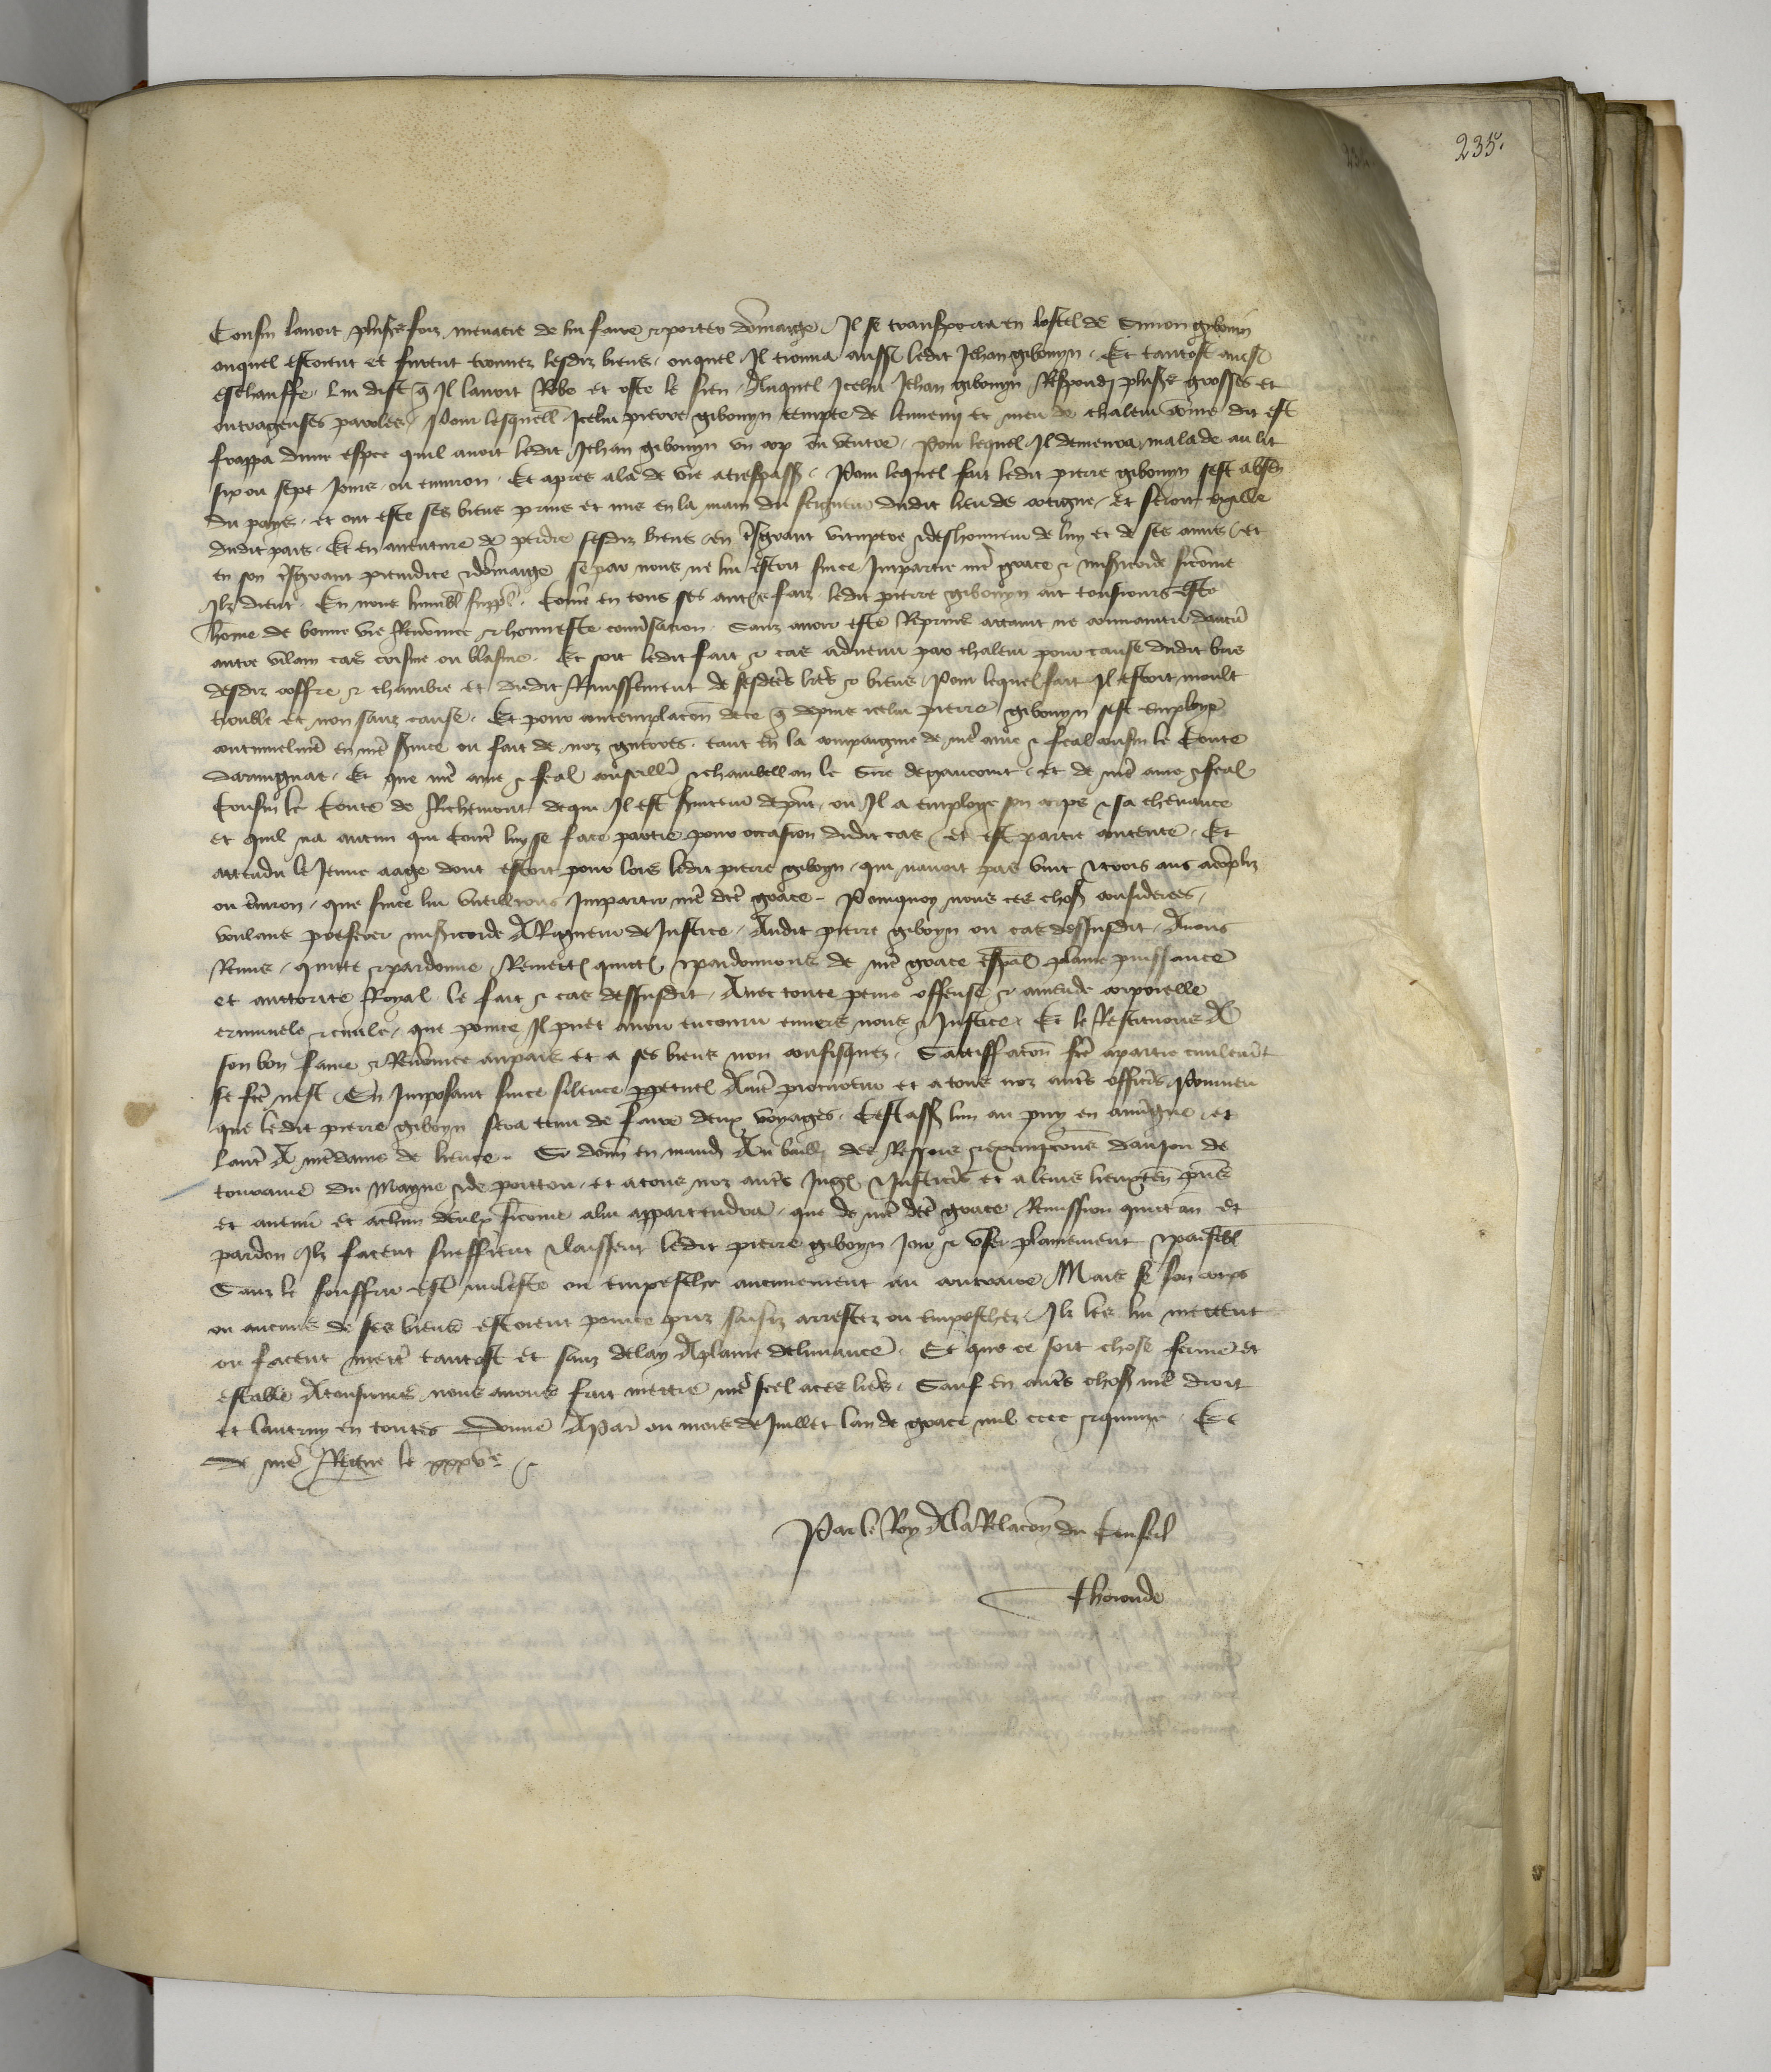 235
Cousin lavoit plusrs foiz menacie de lui faire & porter dommaige Il se transporta en lostel de Simon giboyn
ouquel estoient et furent trouvez lesdiz biens ouquel Il trouva aussi ledit Jehan giboyn Et tantost
eschauffe lui dist q Il lavoit Robe et oste le sien Auquel Icelui Jehan giboyn Respondi plusrs grosses et
outrageuses paroles Pour lesquell Icelui pierre giboyn tempte de lennemi et meu de chaleur come dit est
frappa dune espee quil avoit ledit Jehan giboyn un cop ou ventre Pour lequel Il demoura malade au lit
six ou sept Jours ou environ Et apres ala de vie a trespassement Pour lequel fait ledit pierre giboyn sest absente
du pays et ont este ses biens prins et mis en la main du seigneur dudit lieu de et seroit
dudit pais Et en aventure de perdre sesdiz biens en grant vitupere & deshonneur de luy et de ses amis et
en son grant preiudice & domaige se par nous ne lui estoit sur ce Impartie nre grace & misericorde sicome
Ilz dient En nous humbl suppl Come en tous ses autres faiz ledit pierre giboyn ait tousiours este
home de bonne vie Renomee & honneste conversacion Sanz avoir este Reprins attaint ne convaincu daucun
autre vilain cas crisme ou blasme Et soit ledit fait & cas advenu par chaleur pour cause dudit bris
desdiz coffre & chambre et dudit Ravissement de sesdces lres & biens Pour lequel fait Il estoit moult
trouble et non sanz cause Et pour contemplacon de ce q depuis icelui pierre giboyn sest employe
continuelmet en nre service ou fait de noz guerres tant en la compaignie de nre ame & feal cousin le Conte
Darmignac Et que nre ame & feal conseiller & chambellan le Sire de gaucourt et de nre ame & feal
Cousin le Conte de Richemont de qui Il est serviteur de pnt ou Il a employe son corps & sa chevance
et quil na aucun qui contre luy se face partie pour occasion dudit cas et est partie contente Et
attendu le Jeune aage dont estoit pour lors ledit pierre giboyn qui navoit pas vint & trois ans acopliz
ou environ que sur ce lui vueillons Impartir nre dce grace Pourquoy nous ces choses considerees
voulans preferer misericorde A Rigueur de Justice Audit pierre giboyn ou cas dessusdit Avons
Remis quitte & pardonne Remettons quittons & pardonnons de nre grace espal plaine puissance
et auctorite Royal le fait & cas dessusdit Avec toute peine offense & amende corporelle
criminele & civile que pour ce Il puet avoir encouru envers nous & Justice Et le Restituons A
son bon fame & Renomee au pais et a ses biens non confisquez Satisffacon fce a partie civilemt
se fce nest En Imposant sur ce silence perpetuel A nre procureur et a tous noz autres officiers Pourveu
que ledit pierre giboyn sera tenu de faire deux voyages Cest ass lun au puy en auvgne et
lautre A nredame de liance Si donn en mand Au bailli des Ressors & exempcions danjou de
touraine du Mayne & de poittou et a tous noz autres Juges & Justiciers et a leurs lieuxten pns
et avenir et a chun deulx sicome a lui appartendra que de nre dce grace Remission quittance et
pardon Ilz facent sueffrent & laissent ledit pierre giboyn Joir & user plainement & paisibl
Sanz le souffrir estre moleste ou empeschie aucunement au contraire Mais se son corps
ou aucuns de ses biens estoient pour ce prins saisiz arrestez ou empeschez Ilz les lui mettent
ou facent mettre tantost et sanz delay A plaine delivrance Et que ce soit chose ferme et
estable A tousiours nous avons fait mettre nre scel a ces lres Sauf en autres choses nre droit
et lautruy en toutes Donne A Paris ou mois de Juillet lan de grace mil cccc & quinze Et
de nre Regne le xxxve
Par le Roy A la Relacon du Conseil
Thoronde